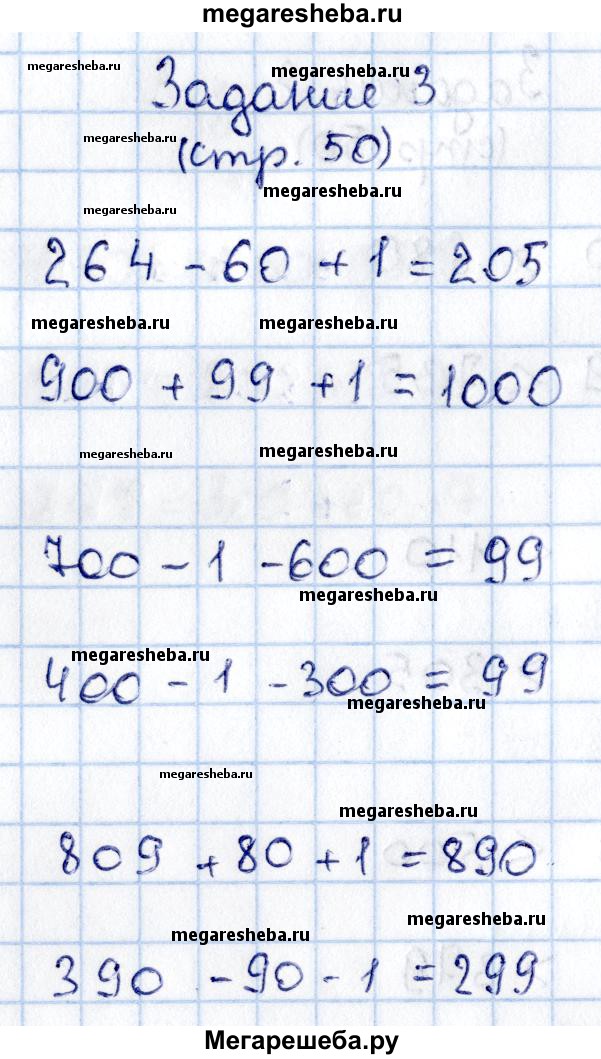 megaresheba.ru
megaresheba.ru
megaresheba.ru
Задание 3
megaresheba.ru
(стр. 50)
megaresheba.ru
megaresheba.ru
264 - 60 + 1 = 205
megaresheba.ru megaresheba.ru
900 + 99 + 1 = 1000
megaresheba.ru megaresheba.ru
700 - 1 - 600 = 99
megaresheba.ru
megaresheba.ru
400 - 1 - 300 = 99
megaresheba.ru
megaresheba.ru
megaresheba.ru
809 + 80 + 1 = 890
megaresheba.ru
megaresheba.ru
390 - 90 - 1 = 299
Мегарешеба.ру